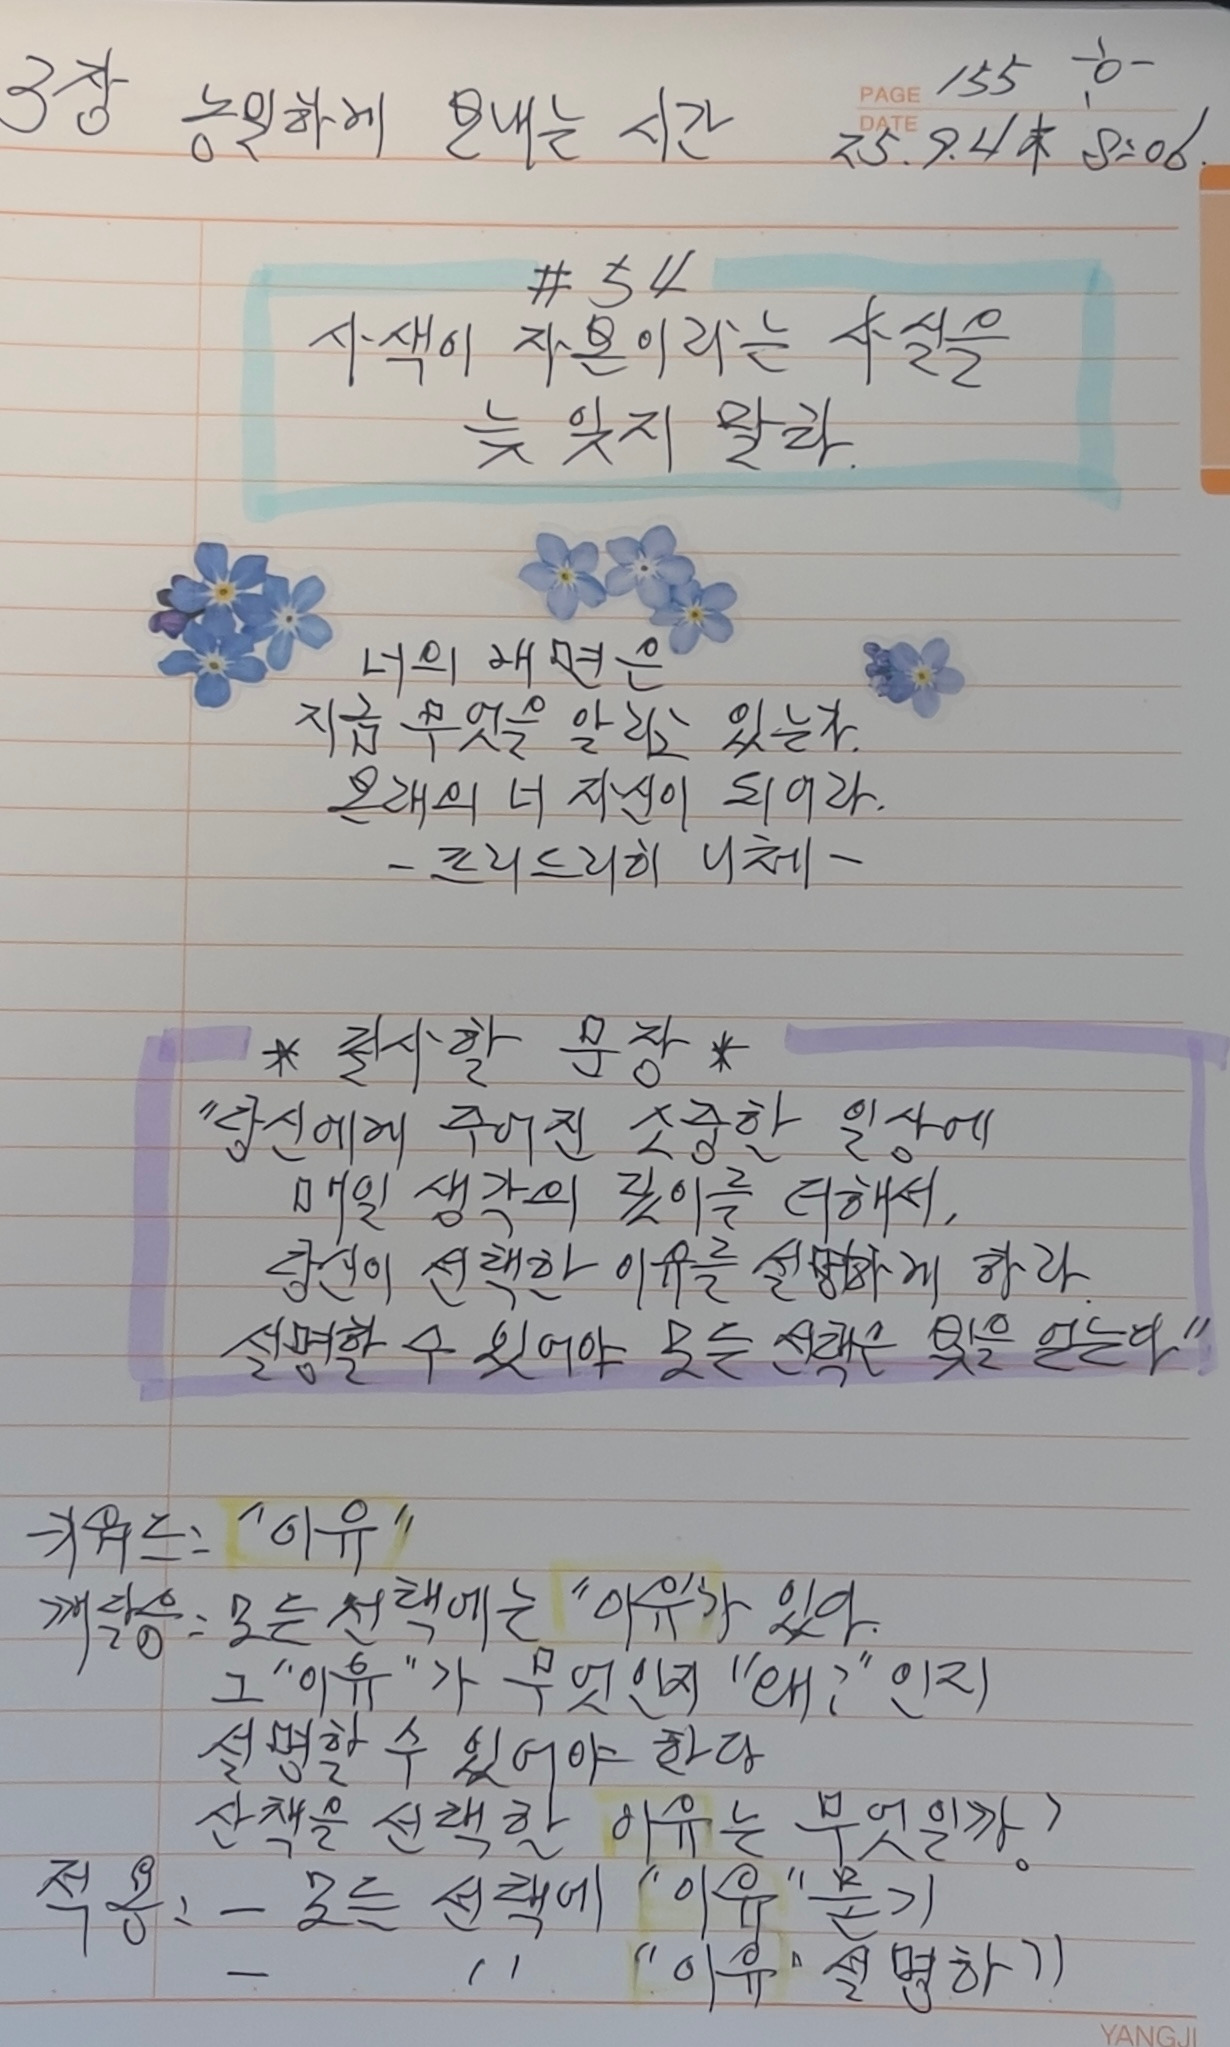 3장 농밀하게 보내는 시간
PAGE 155 흐
DATE 25.9.4 木 8:06.
#54
사색이 자본이라는 사실을
늘 잊지 말라.
너의 내면은
지금 무엇을 알리고 있는가.
본래의 너 자신이 되어라.
- 프리드리히 니체 -
* 필사할 문장 *
"당신에게 주어진 소중한 일상에
매일 생각의 깊이를 더해서,
당신이 선택한 이유를 설명하게 하라.
설명할 수 있어야 모든 선택은 빛을 얻는다"
키워드: "이유"
깨달음: 모든 선택에는 "이유"가 있다.
그 "이유"가 무엇인지 "왜?" 인지
설명할 수 있어야 한다
산책을 선택한 이유는 무엇일까?
적용: - 모든 선택에 "이유" 묻기
- 〃 "이유" 설명하기
YANGJI